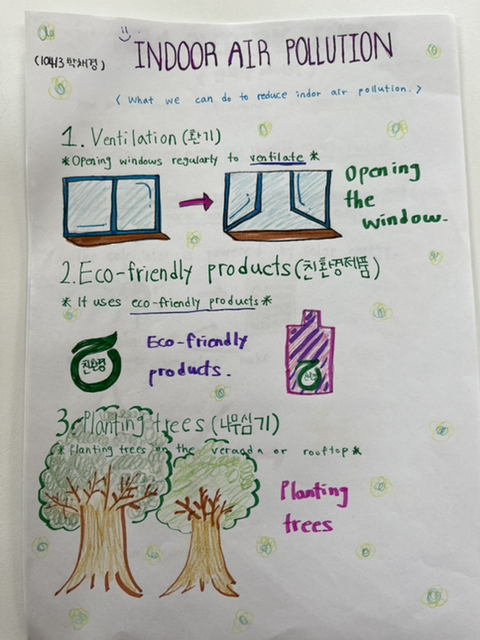 INDOOR AIR POLLUTION
(10413 박채경)
< What we can do to reduce indor air pollution. >
1. Ventilation (환기)
* Opening windows regularly to ventilate *
Opening
the
window.
2. Eco-friendly products (친환경제품)
* It uses eco-friendly products *
친환경
Eco-friendly
products.
3. Planting trees (나무심기)
* Planting trees on the veranda or rooftop *
Planting
trees